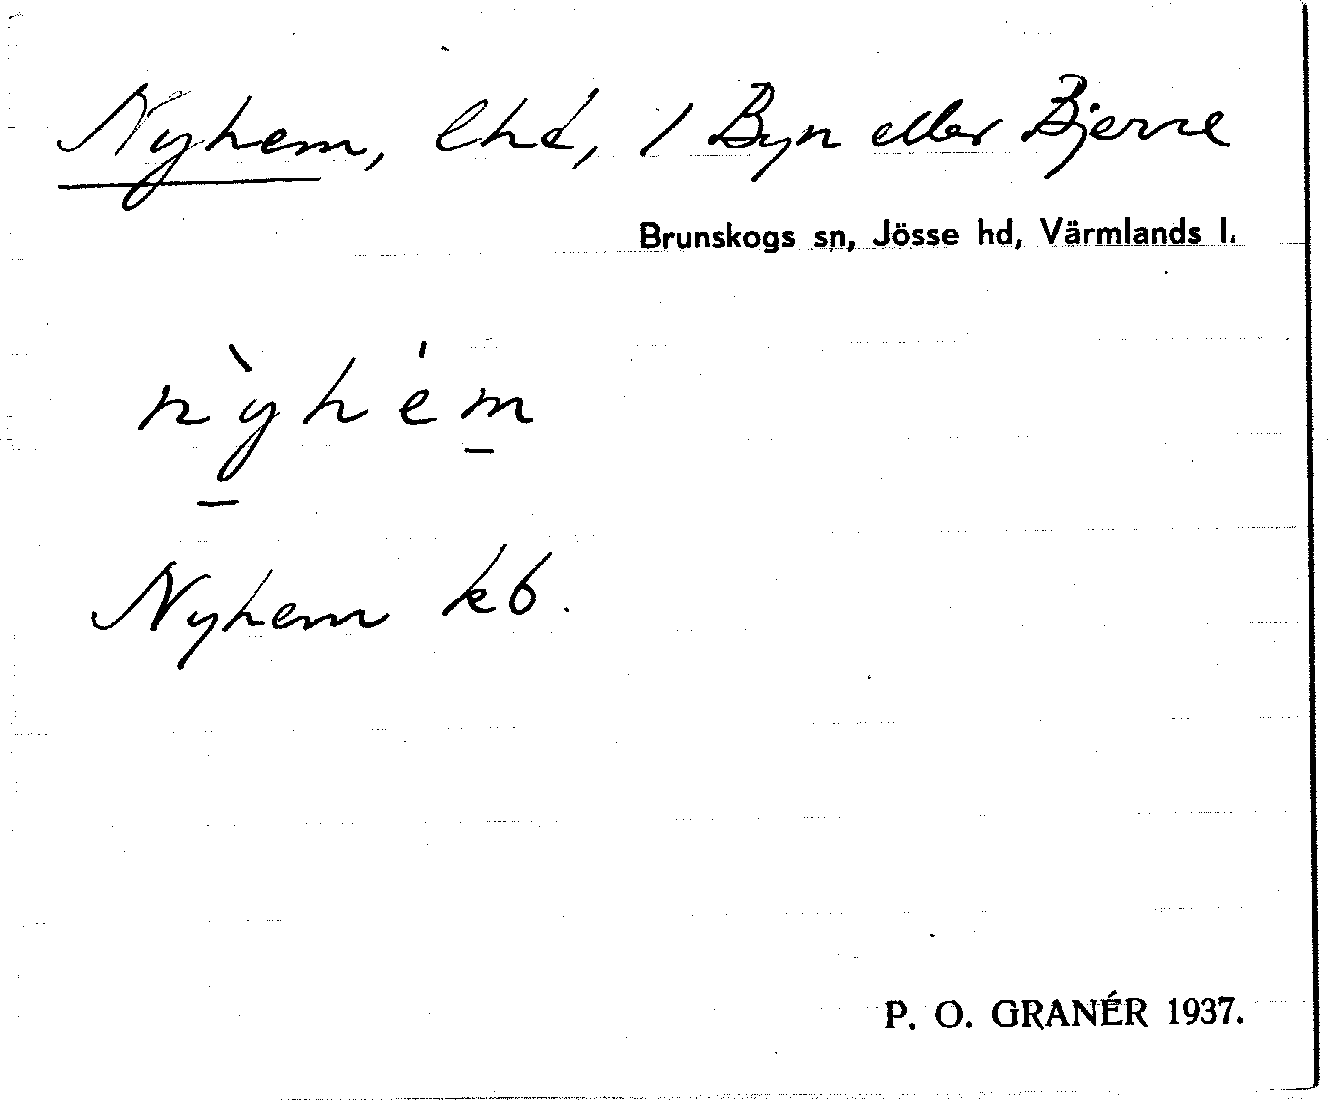 Nyhem, lhé, / Byn eller Bjerne
Brunskogs sn, Jösse hd, Värmlands l.
nỳhém
Nyhem kb.
P. O. GRANÉR 1937.